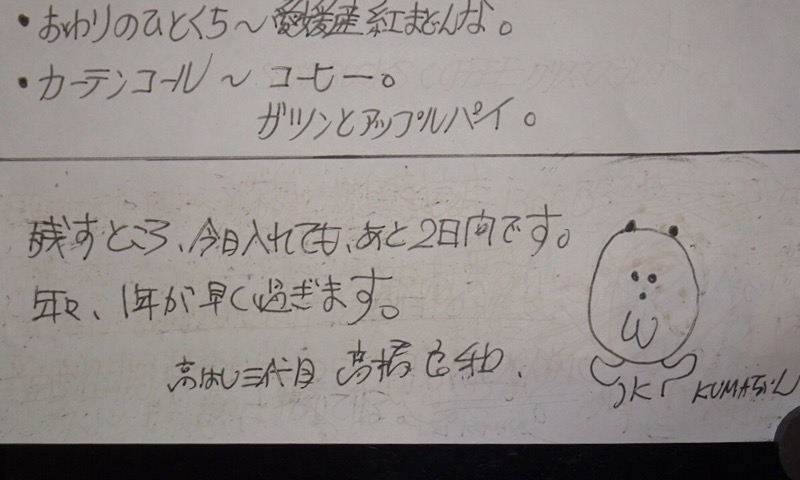 ・おわりのひとくち～愛媛産紅まどんな。
・カーテンコール～コーヒー。
ガツンとアップルパイ。
残すところ、今日入れても、あと2日間です。
年々、1年が早く過ぎます。
高はし三代目 高橋
KUMAちゃん